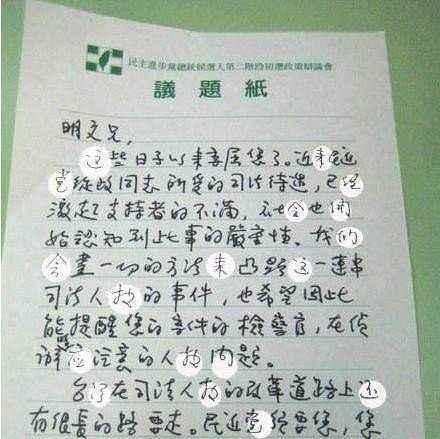 民主進步黨總統候選人第二階段初選政策辯論會
議題紙
明文兄,
這些日子以來委屈您了。近來民進
黨從政同志所受的司法待遇,已經
激起了支持者的不滿,社會也開
始認知到此事的嚴重性。我們
會盡一切的方法來凸顯這一連串
司法人權的事件,也希望因此
能提醒您的案件的檢警官,在偵
辦應注意的人權問題。
台灣在司法人權的改革道路上還
有很長的路要走。民進黨要您,您